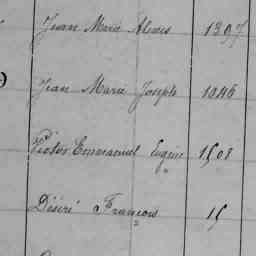 Jean Marie Alexis 1397
Jean Marie Joseph 1046
Victor Emmanuel Eugène 1508
Désiré François 15